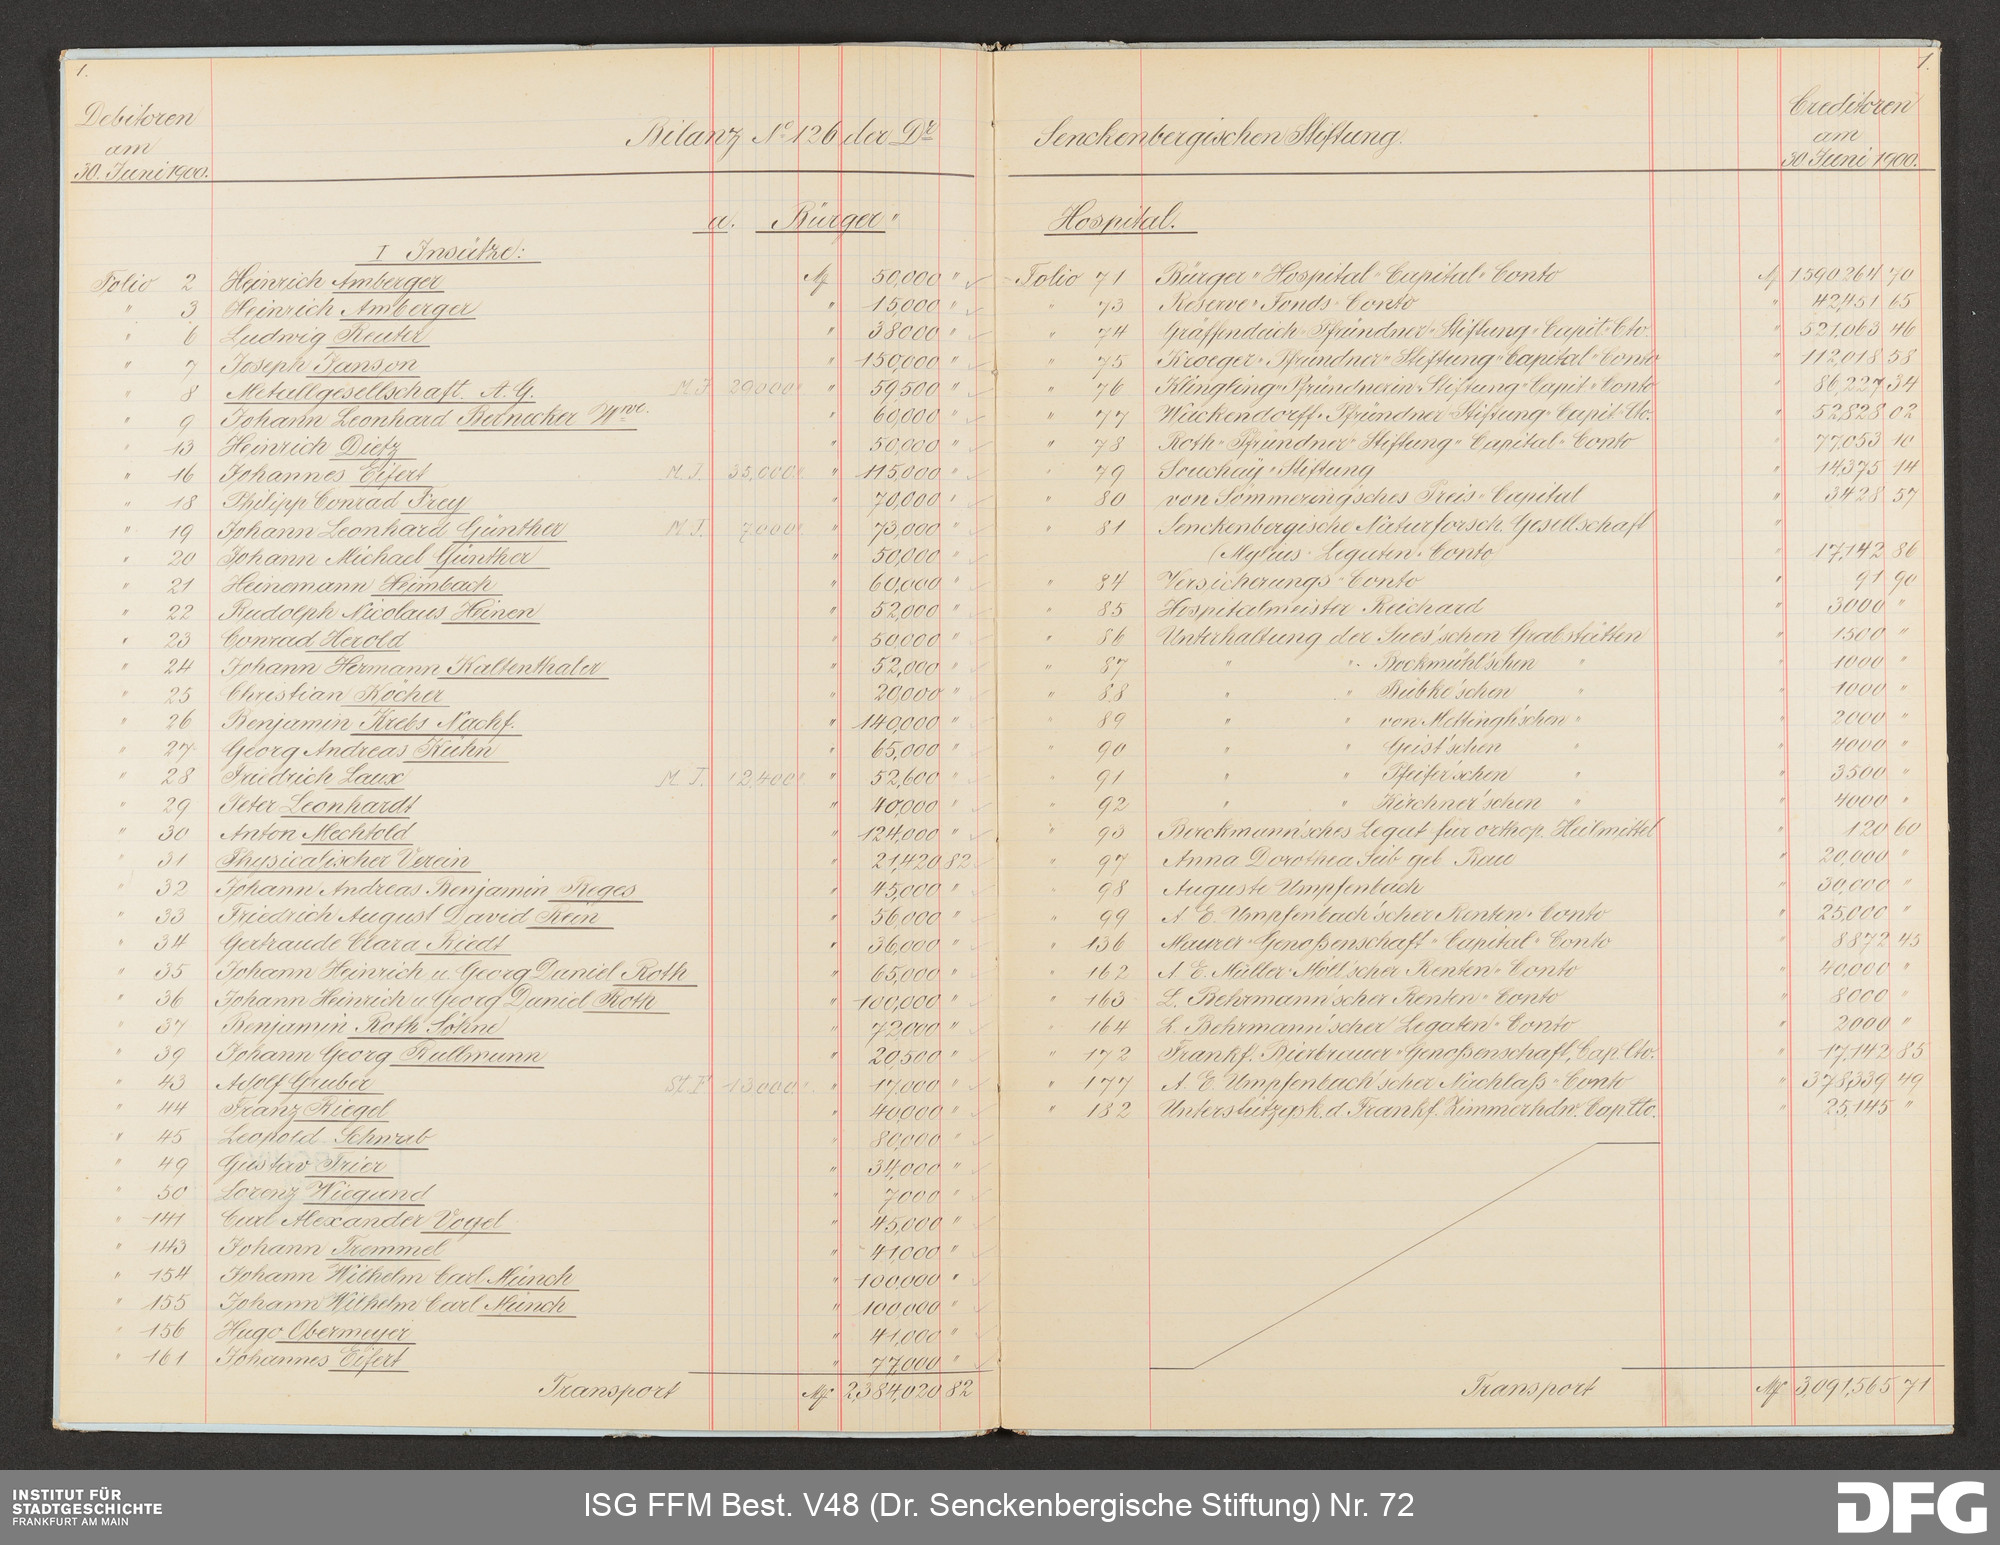 1.
Debitoren
am
30. Juni 1900.
Bilanz No. 126 der Dr.
a. Bürger"
I Insätze:
Folio 2 Heinrich Amberger M 50,000 "
" 3 Heinrich Amberger " 15,000 "
" 6 Ludwig Reuter " 38000 "
" 7 Joseph Janson " 150,000 "
" 8 Metallgesellschaft A. G. " 59,500 "
" 9 Johann Leonhard Wwe. " 60,000 "
" 13 Heinrich Dietz " 50,000 "
" 16 Johannes Eifert M. I. 35,000 " " 115,000 "
" 18 Philipp Conrad Frey " 70,000 "
" 19 Johann Leonhard Günther M. I. 7000 " " 73,000 "
" 20 Johann Michael Günther " 50,000 "
" 21 Heinemann Heimbach " 60,000 "
" 22 Rudolph Nicolaus Heinen " 52,000 "
" 23 Conrad Herold " 50,000 "
" 24 Johann Hermann Kaltenthaler " 52,000 "
" 25 Christian Kocher " 20,000 "
" 26 Benjamin Krebs Nachf. " 140,000 "
" 27 Georg Andreas Kühn " 65,000 "
" 28 Friedrich Laux M. I. 12,400 " " 52,600 "
" 29 Peter Leonhardt " 40,000 "
" 30 Anton Mechtold " 124,000 "
" 31 Physicalischer Verein " 21,420 82
" 32 Johann Andreas Benjamin Reges " 45,000 "
" 33 Friedrich August David Rein " 56,000 "
" 34 Gertraude Clara Riedt " 36,000 "
" 35 Johann Heinrich u. Georg Daniel Roth " 65,000 "
" 36 Johann Heinrich u. Georg Daniel Roth " 100,000 "
" 37 Benjamin Roth Söhne " 72,000 "
" 39 Johann Georg Rullmann " 20,500 "
" 43 Adolf Gruber 13000 " " 17,000 "
" 44 Franz Riegel " 40,000 "
" 45 Leopold Schwab " 80,000 "
" 49 Gustav Trier " 34,000 "
" 50 Lorenz Wiegand " 7000 "
" 141 Carl Alexander Vogel " 45,000 "
" 143 Johann Tremmel " 41,000 "
" 154 Johann Wilhelm Carl Münch " 100,000 "
" 155 Johann Wilhelm Carl Münch " 100,000 "
" 156 Hugo Obermeyer " 41,000 "
" 161 Johannes Eifert " 77,000 "
Transport M 2,384,020 82
1.
Creditoren
am
30 Juni 1900.
Senckenbergischen Stiftung.
Hospital.
Folio 71 Bürger" Hospital" Capital" Conto M 1590264 70
" 73 Reserve" Fonds" Conto " 42,451 65
" 74 Gräffendeich" Pfründner" Stiftung" Capit" Cto. " 521,063 46
" 75 Kroeger" Pfründner" Stiftung" Capital" Conto " 112,018 58
" 76 Klingling" Pfründnerin" Stiftung" Capit" Conto " 86,227 34
" 77 Wückendorff" Pfründner" Stiftung" Capit" Cto. " 52,828 02
" 78 Roth" Pfründner" Stiftung" Capital" Conto " 77,053 10
" 79 Souchay" Stiftung " 14,375 14
" 80 von Sömmering'sches Preis" Capital " 3428 57
" 81 Senckenbergische Naturforsch. Gesellschaft "
(Mylius" Legaten" Conto " 17,142 86
" 84 Versicherungs" Conto " 91 90
" 85 Hospitalmeister Reichard " 3000 "
" 86 Unterhaltung der Sues'schen Grabstätten " 1500 "
" 87 " " Bockmühl'schen " " 1000 "
" 88 " " Rübke'schen " " 1000 "
" 89 " " von Mettingh'schen " " 2000 "
" 90 " " Geist'schen " " 4000 "
" 91 " " Pfeifer'schen " " 3500 "
" 92 " " Kirchner'schen " " 4000 "
" 93 Borckmann'sches Legat für orthop. Heilmittel " 120 60
" 97 Anna Dorothea geb. " 20,000 "
" 98 Auguste Umpfenbach " 30,000 "
" 99 A. E. Umpfenbach'scher Renten" Conto " 25,000 "
" 136 Maurer" Genoßenschaft" Capital" Conto " 8872 45
" 162 A. E. Müller Möll'scher Renten" Conto " 40,000 "
" 163 L. Behrmann'scher Renten" Conto " 8000 "
" 164 L. Behrmann'scher Legaten" Conto " 2000 "
" 172 Frankf. Bierbrauer" Genoßenschaft, Cap. Cto. " 17,142 85
" 177 A. E. Umpfenbach'scher Nachlaß" Conto " 378,339 49
" 182 Unterstützgsk. d. Frankf. Zimmerhdw. Cap Cto. " 25,145 "
Transport M 3,091,565 71
INSTITUT FÜR
STADTGESCHICHTE
FRANKFURT AM MAIN
ISG FFM Best. V48 (Dr. Senckenbergische Stiftung) Nr. 72
DFG